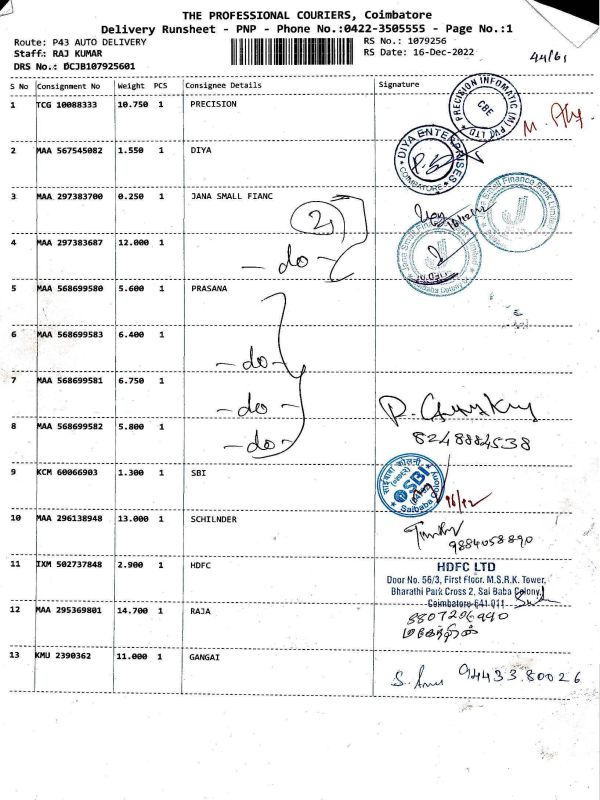 THE PROFESSIONAL COURIERS, Coimbatore
Delivery Runsheet - PNP - Phone No.:0422-3505555 - Page No.:1
Route: P43 AUTO DELIVERY
Staff: RAJ KUMAR
DRS No.: DCJB107925601
RS No.: 1079256
RS Date: 16-Dec-2022
44/61
S No Consignment No Weight PCS Consignee Details Signature
1 TCG 10088333 10.750 1 PRECISION
PRECISION INFOMATIC (M) PVT LTD
CBE
2 MAA 567545082 1.550 1 DIYA
DIYA ENTERPRISES
COIMBATORE
3 MAA 297383700 0.250 1 JANA SMALL FIANC
2
Jana Small Finance Bank Limited
4 MAA 297383687 12.000 1 - do -
5 MAA 568699580 5.600 1 PRASANA
6 MAA 568699583 6.400 1 - do -
7 MAA 568699581 6.750 1 - do -
8 MAA 568699582 5.800 1 - do -
8248884538
9 KCM 60066903 1.300 1 SBI
SBI
Saibaba Colony
16/12
10 MAA 296138948 13.000 1 SCHILNDER
9884058890
11 IXM 502737848 2.900 1 HDFC
HDFC LTD
Door No. 56/3, First Floor. M.S.R.K. Tower,
Bharathi Park Cross 2, Sai Baba Colony,
Coimbatore-641 011
12 MAA 295369801 14.700 1 RAJA
8807206990
13 KMU 2390362 11.000 1 GANGAI
94433.80026